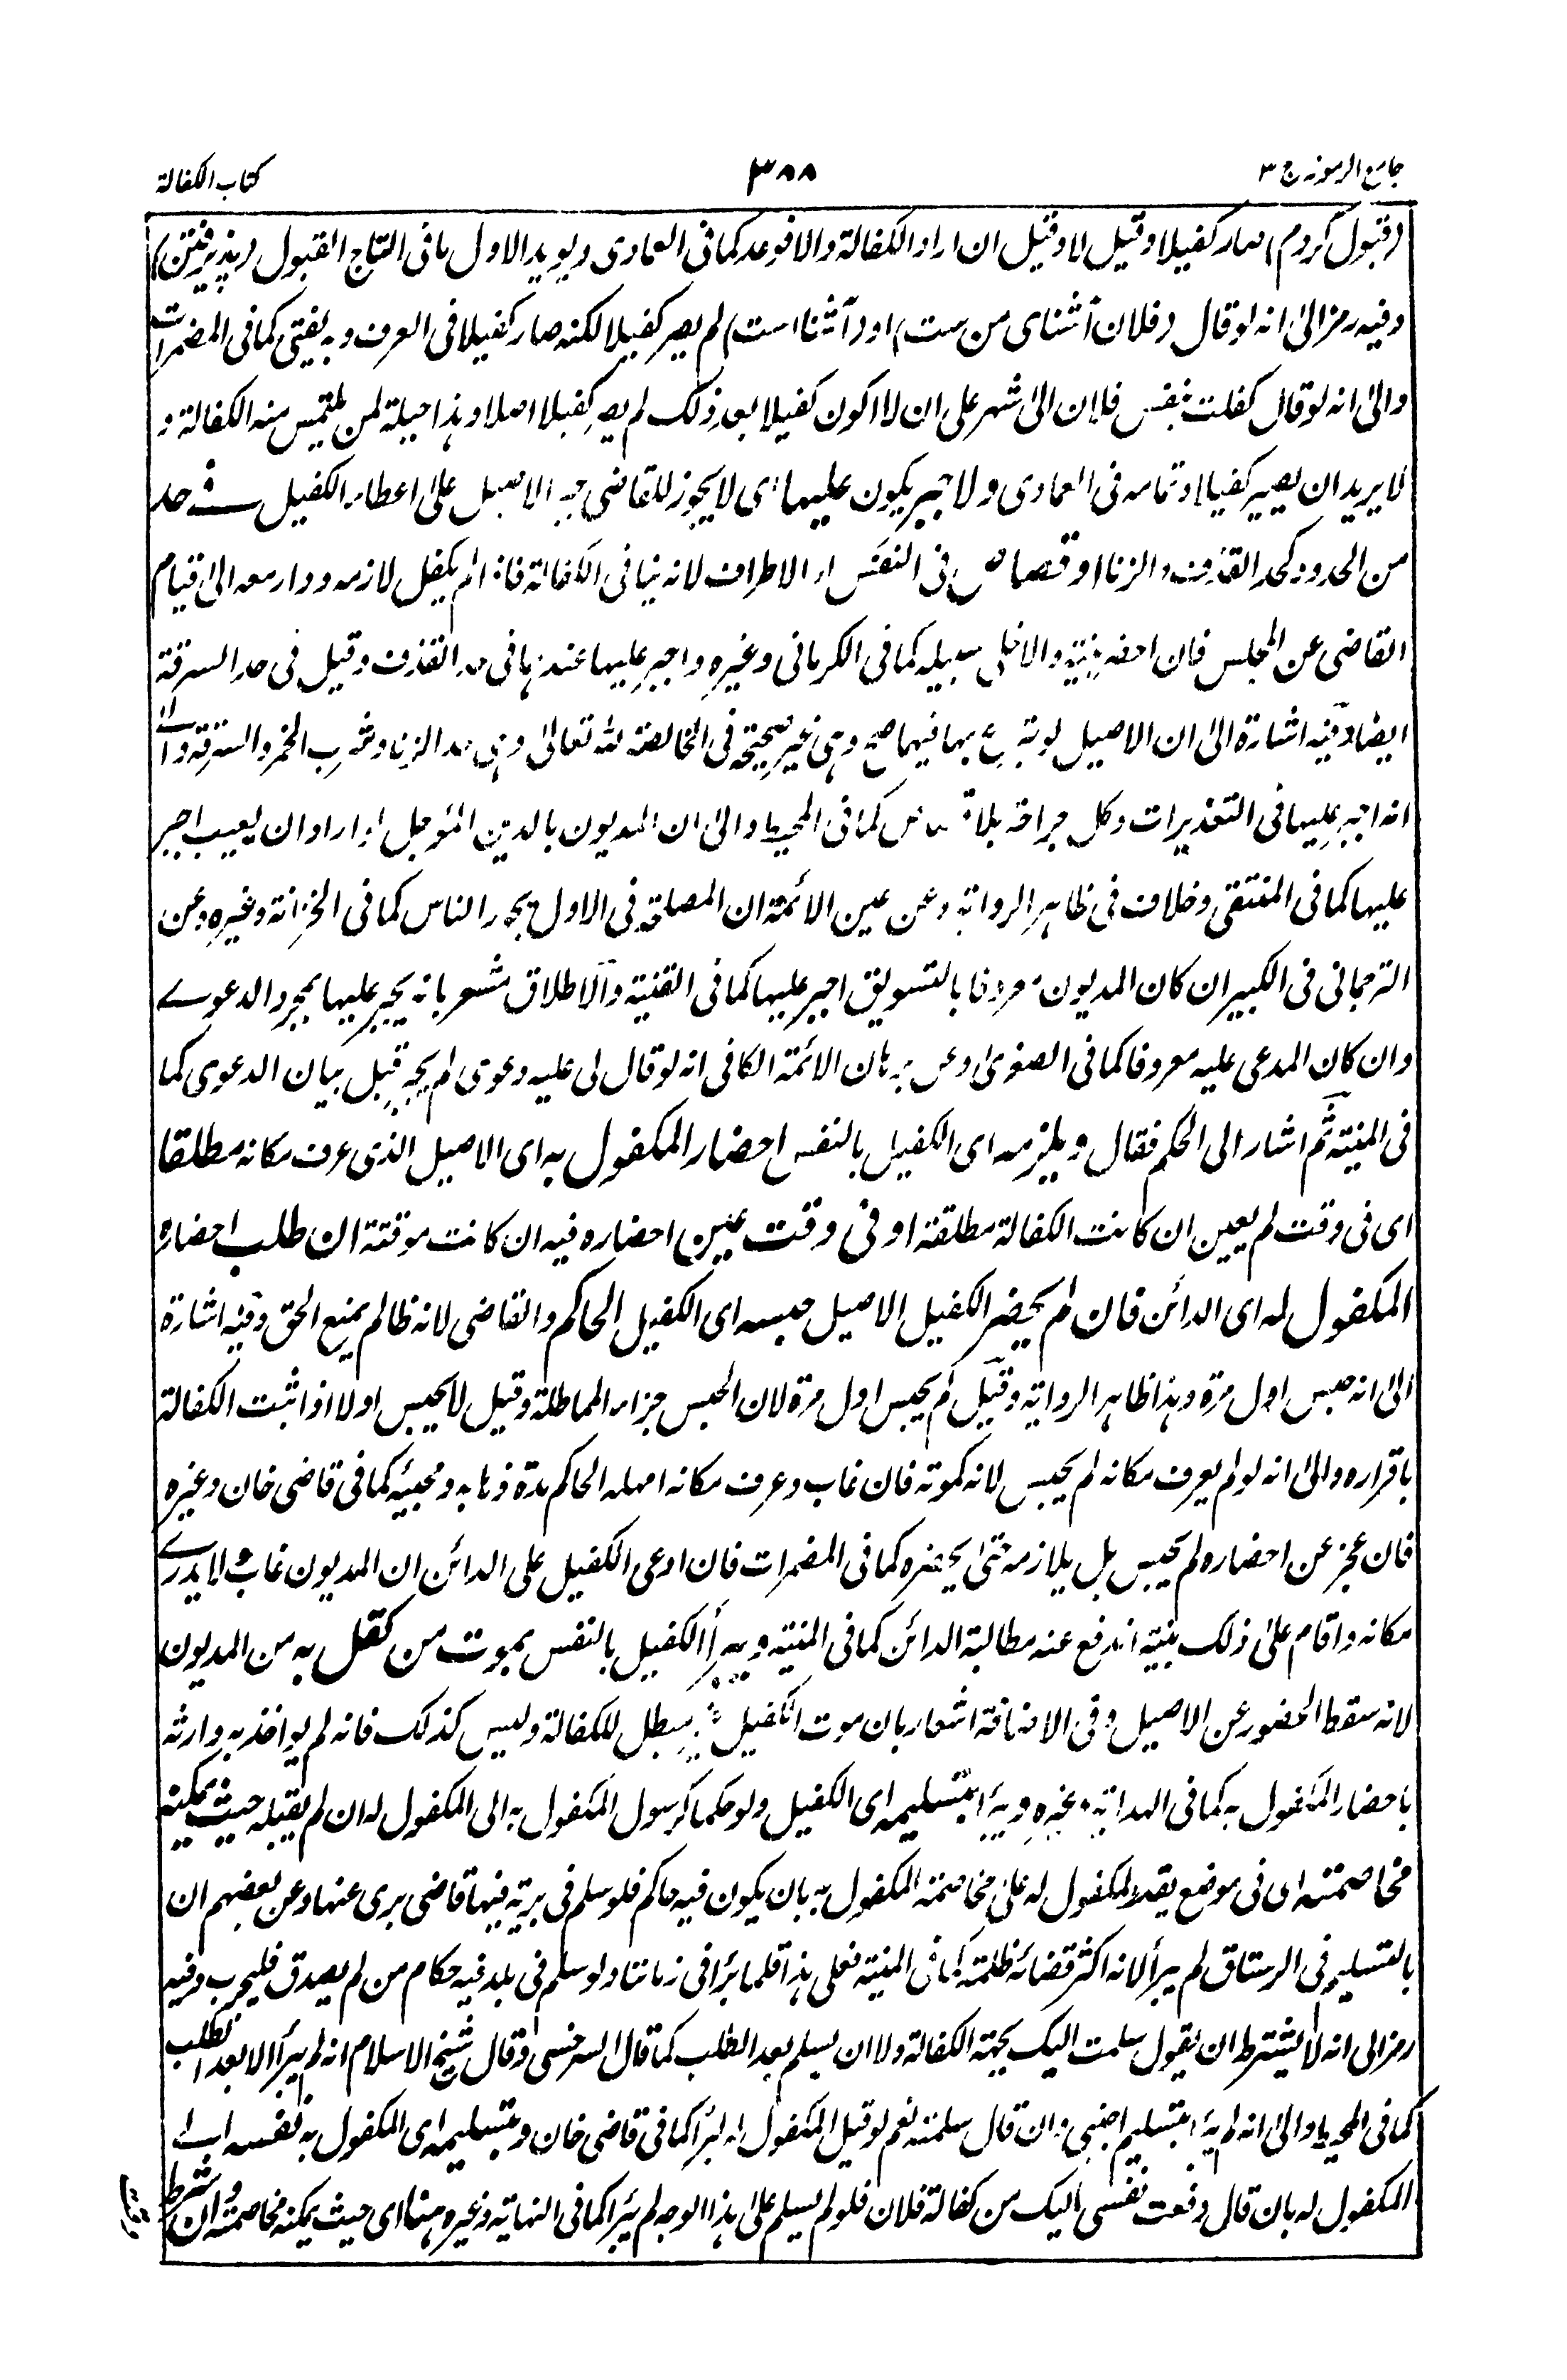 جامع الرموز ج ٣
٣٨٨
كتاب الكفالة
(قبول كردم) صار كفيلا وقيل لا وقيل ان اراد الكفالة والا فوعد كما فى العمادى ويويد الاول ما فى التاج القبول (پذيرفتن)
وفيه رمز الى انه لو قال (فلان آشناى من ست) او (آشنا است) لم يصر كفيلا لكنه صار كفيلا فى العرف وبه يفتى كما فى المضمرات
والى انه لو قال كفلت بنفس فلان الى شهر على ان لا اكون كفيلا بعد ذلك لم يصر كفيلا اصلا وهذا حيلة لمن يلتمس منه الكفالة و
لا يريد ان يصير كفيلا وتمامه فى العمادى ولا جبر يكون عليها اى لا يجوز للقاضى جبر الاصيل على اعطاء الكفيل فى حد
من الحدود كحد القذف والزنا او قصاص فى النفس او الاطراف لانه ينافى الكفالة فان لم يكفل لازمه ودار معه الى قيام
القاضى عن المجلس فان احضر بينة والا خلى سبيله كما فى الكرمانى وغيره واجبر عليها عندهما فى حد القذف وقيل فى حد السرقة
ايضا وفيه اشارة الى ان الاصيل لو تبرع بها فيهما صح وهى غير صحيحة فى الخالصة لله تعالى وهى حد الزنا وشرب الخمر والسرقة والى
انه اجبر عليها فى التعذيرات وكل جراحة بلا قصاص كما فى المحيط والى ان المديون بالدين المؤجل اذا اراد ان يغيب اجبر
عليها كما فى المنتقى وخلاف فى ظاهر الرواية وعن عين الائمة ان المصلحة فى الاول بحذر الناس كما فى الخزانة وغيره وعن
الترجمانى فى الكبير ان كان المديون معروفا بالتسويق اجبر عليها كما فى القنية والاطلاق مشعر بانه يجبر عليها بمجرد الدعوى
وان كان المدعى عليه معروفا كما فى الصغرى وعن برهان الائمة الكافى انه لو قال لى عليه دعوى لم يجبر قبل بيان الدعوى كما
فى المنية ثم اشار الى الحكم فقال ويلزمه اى الكفيل بالنفس احضار المكفول به اى الاصيل الذى عرف مكانه مطلقا
اى فى وقت لم يعين ان كانت الكفالة مطلقة او فى وقت عين احضاره فيه ان كانت موقتة ان طلب احضاره
المكفول له اى الدائن فان لم يحضر الكفيل الاصيل حبسه اى الكفيل الحاكم والقاضى لانه ظالم بمنع الحق وفيه اشارة
الى انه حبس اول مرة وهذا ظاهر الرواية وقيل لم يحبس اول مرة لان الحبس جزاء المماطلة وقيل لا يحبس اولا اذا ثبت الكفالة
باقراره والى انه لو لم يعرف مكانه لم يحبس لانه كموته فان غاب وعرف مكانه امهله الحاكم مدة ذهابه ومجيئه كما فى قاضى خان وغيره
فان عجز عن احضاره لم يحبس بل يلازمه حتى يحضره كما فى المضمرات فان ادعى الكفيل على الدائن ان المديون غاب لا يدرى
مكانه واقام على ذلك بينة اندفع عنه مطالبة الدائن كما فى المنية ويبرأ الكفيل بالنفس بموت من كفل به من المديون
لانه سقط الحضور عن الاصيل وفى الاضافة اشعار بان موت الكفيل مبطل للكفالة وليس كذلك فانه لم يواخذ به وارثه
باحضار المكفول به كما فى الهداية وغيره ويبرأ بتسليمه اى الكفيل ولو حكما كرسول المكفول به الى المكفول له ان لم يقبله حيث يمكنه
مخاصمته اى فى موضع يقدر المكفول له على مخاصمة المكفول به بان يكون فيه حاكم فلو سلم فى برية فيها قاضى برى عنها وعن بعضهم ان
بالتسليم فى الرستاق لم يبرأ لانه اكثر قضائه ظلمة كما فى المنية فعلى هذا قلما يبرأ فى زماننا ولو سلم فى بلد فيه حكام من لم يصدق فليجرب وفيه
رمز الى انه لا يشترط ان يقول سلمت اليك بجهة الكفالة ولا ان يسلم بعد الطلب كما قال السرخسى وقال شيخ الاسلام انه لم يبرأ الا بعد الطلب
كما فى المحيط والى انه لم يبرأ بتسليم اجنبى وان قال سلمته نعم لو قبل المكفول له لبرأ كما فى قاضى خان وبتسليمه اى المكفول به نفسه اى
المكفول له بان قال دفعت نفسى اليك من كفالة فلان فلو لم يسلم على هذا الوجه لم يبرأ كما فى النهاية وغيره هنا اى حيث يمكنه مخاصمته وان شرط